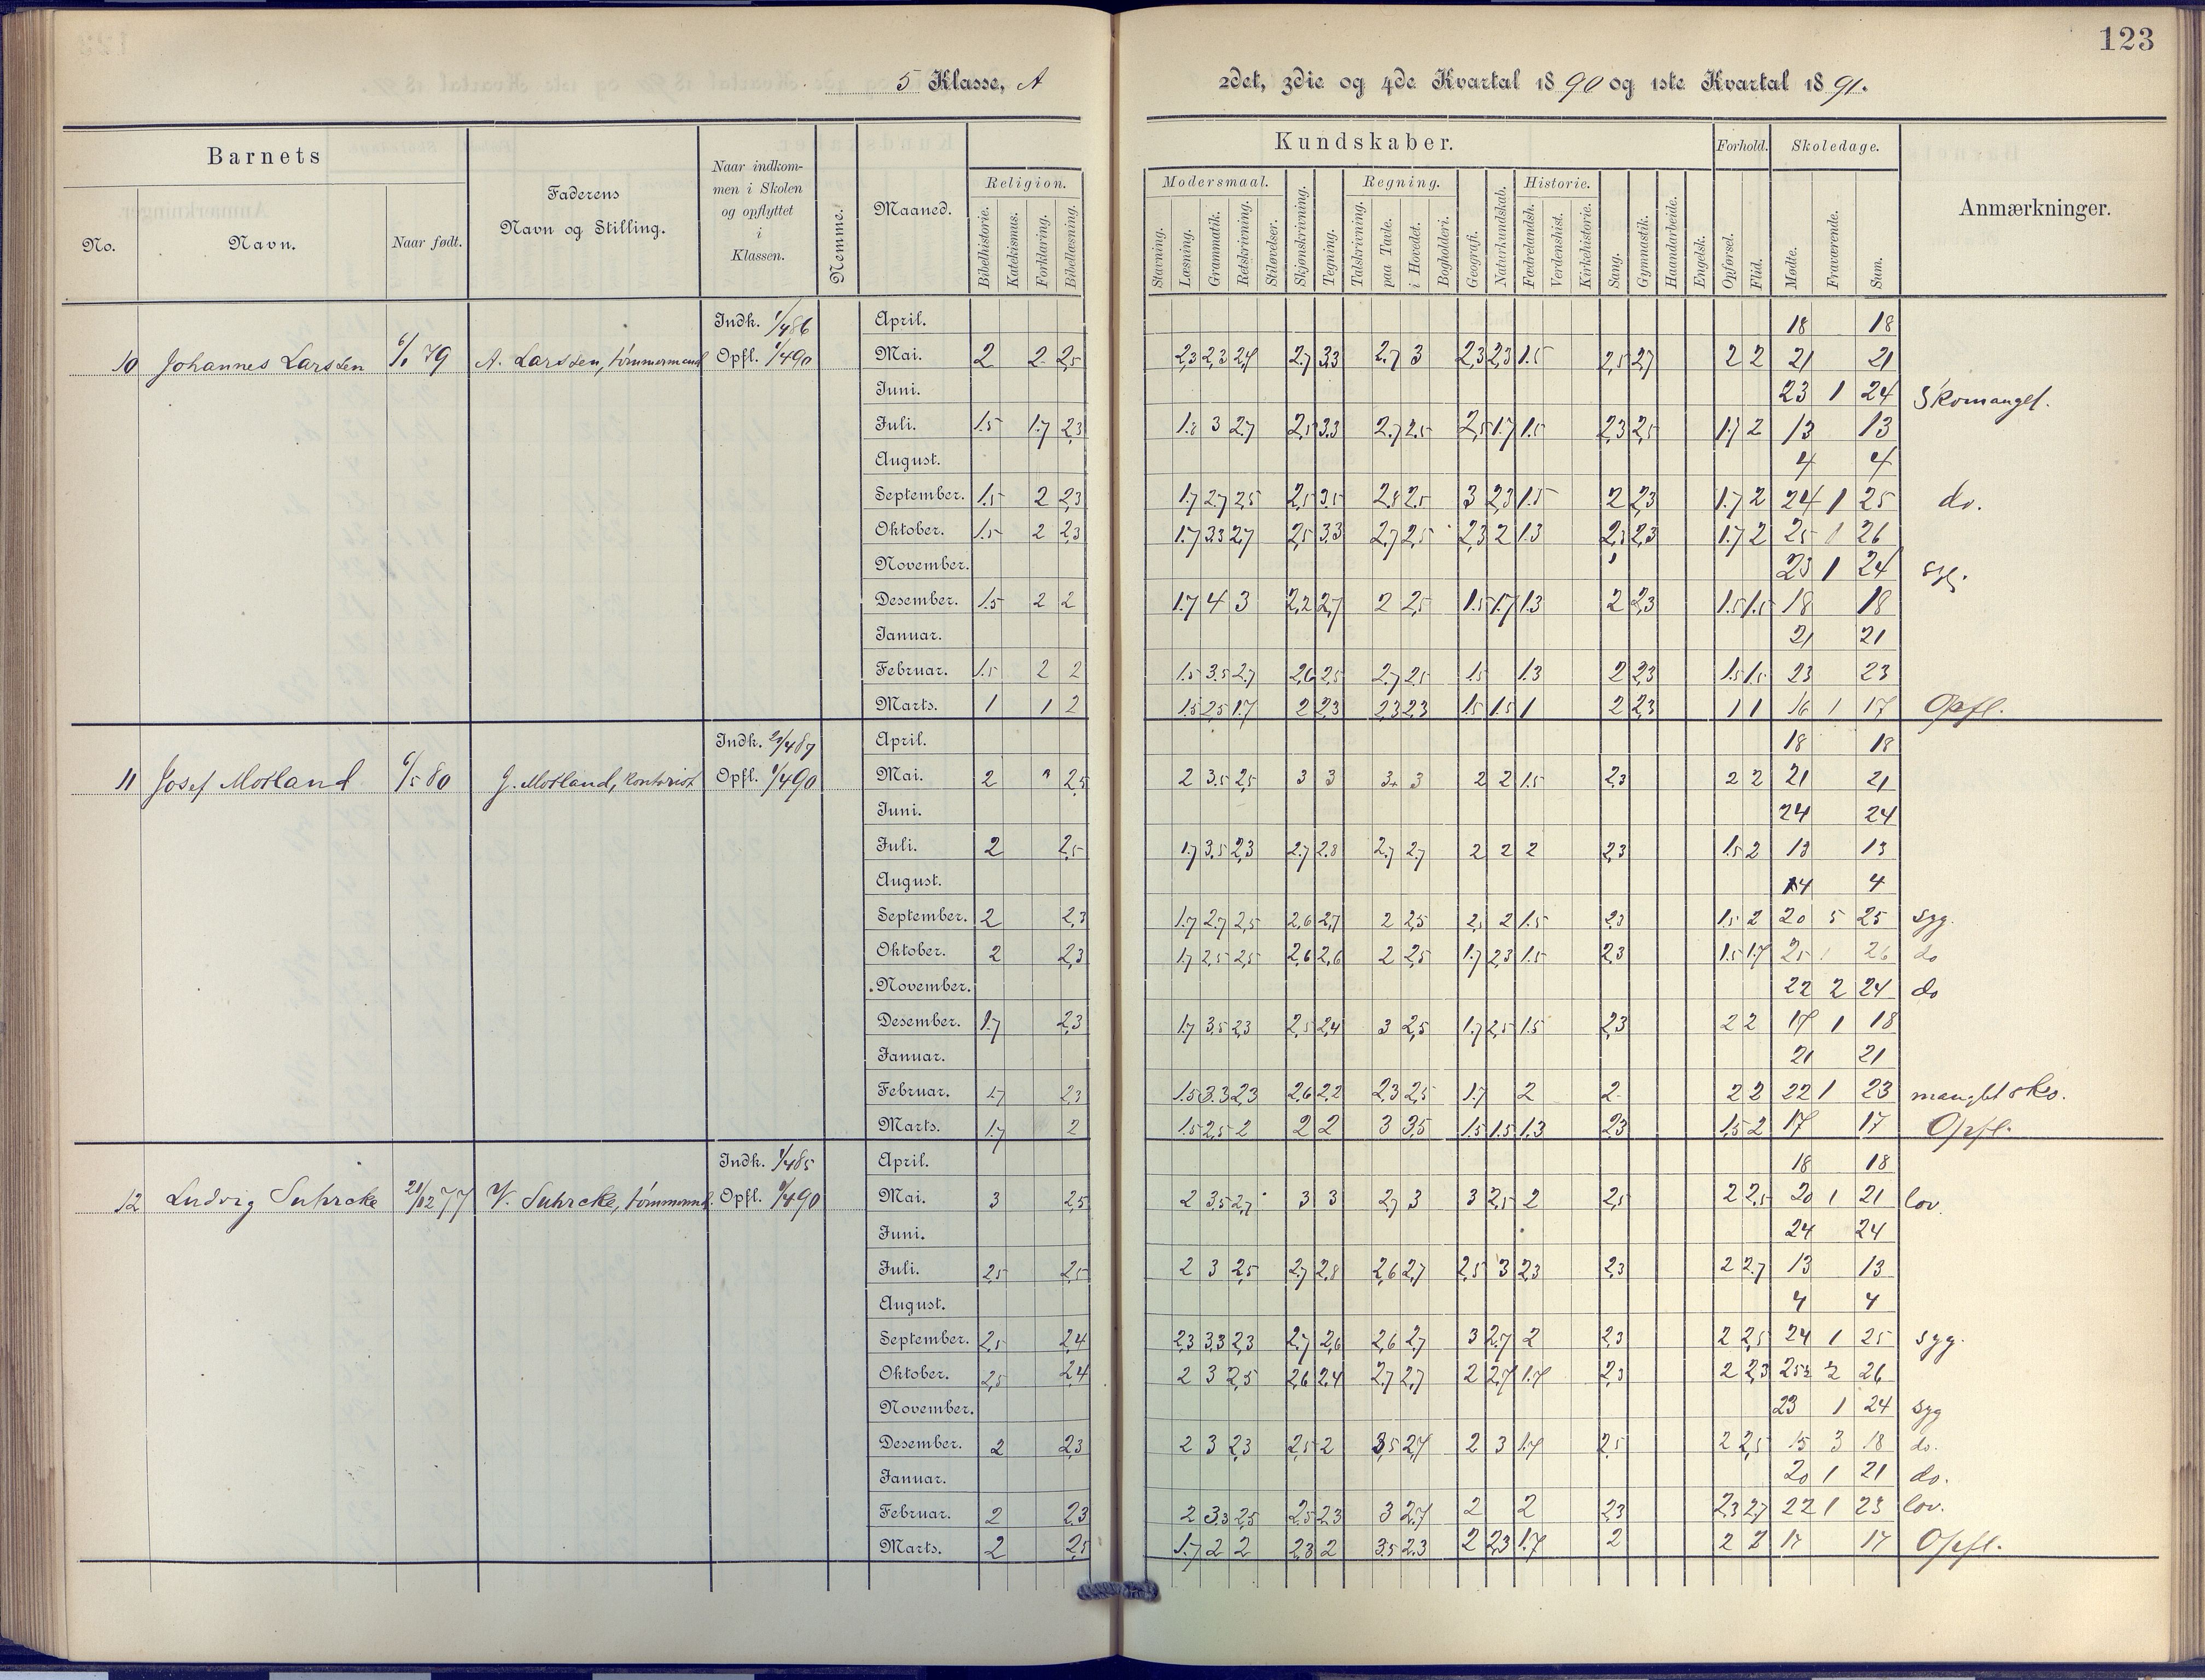 123
5 Klasse, A
2det, 3die og 4de Kvartal 1890 og 1ste Kvartal 1891.
Barnets
No.
Navn.
Naar født.
Faderens
Navn og Stilling.
Naar indkom-
men i Skolen
og opflyttet
i
Klassen.
Nemme.
Maaned.
Kundskaber.
Religion.
Bibelhistorie.
Katekismus.
Forklaring.
Bibellæsning.
Modersmaal.
Stavning.
Læsning.
Grammatik.
Retskrivning.
Stiløvelser.
Skjønskrivning.
Tegning.
Regning.
Talskrivning.
paa Tavle.
i Hovedet.
Bogholderi.
Geografi.
Naturkundskab.
Historie.
Fædrelandsh.
Verdenshist.
Kirkehistorie.
Sang.
Gymnastik.
Haandarbeide.
Engelsk.
Forhold.
Opførsel.
Flid.
Skoledage.
Mødte.
Fraværende.
Sum.
Anmærkninger.
Indk. 1/4 86 April. 18 18
10 Johannes Larssen 79 A. Larssen, tømmermand Opfl. 1/4 90 Mai. 2 2 2,5 2,3 2,3 2,4 2,7 3,3 2,7 3 2,3 2,3 1.5 2,5 2,7 2 2 21 21
Juni. 23 1 24 Skomangel.
Juli. 1.5 1.7 2,3 1.8 3 2,7 2,5 3,3 2,7 2,5 2,5 1.7 1.5 2,3 2,5 1.7 2 13 13
August. 4 4
September. 1.5 2 2,3 1.7 2,7 2,5 2,5 3,5 2,8 2,5 3 2,3 1.5 2 2,3 1.7 2 24 1 25 do.
Oktober. 1.5 2 2,3 1.7 3,3 2,7 2,5 3,3 2,7 2,5 2,3 2 1.3 2,3 2,3 1.7 2 25 1 26
November. 23 1 24 syg.
Desember. 1.5 2 2 1.7 4 3 2,2 2,7 2 2,5 1.5 1.7 1.3 2 2,3 1.5 1.5 18 18
Januar. 21 21
Februar. 1.5 2 2 1.5 3.5 2,7 2,6 2,5 2,7 2,5 1.5 1.3 2 2,3 1.5 1.5 23 23
Marts. 1 1 2 1.5 2,5 1.7 2 2,3 2,3 2,3 1.5 1.5 1 2 2,3 1 1 16 1 17 Opfl.
Indk. 4 87 April. 18 18
11 Josef Mosland 6/5 80 J. Mosland, Kontorist Opfl. 1/4 90 Mai. 2 2,5 2 3.5 2,5 3 3 3 2 2 1.5 2,3 2 2 21 21
Juni. 24 24
Juli. 2 2,5 1.7 3.5 2,3 2,7 2.8 2,7 2,7 2 2 2 2,3 1.5 2 13 13
August. 4 4
September. 2 2,3 1.7 2,7 2,5 2,6 2,7 2 2,5 2 1.5 2,3 1.5 2 20 5 25 syg.
Oktober. 2 2,3 1.7 2,5 2,5 2,6 2,6 2 2,5 1.7 2,3 1.5 2,3 1.5 1.7 25 1 26 do
November. 22 2 24 do
Desember. 1.7 2,3 1.7 3,5 2,3 2,5 2,4 3 2,5 1.7 2,5 1.5 2,3 2 2 17 1 18
Januar. 21 21
Februar. 1.7 2,3 1.5 3.3 2,3 2,6 2,2 2,3 2,5 1.7 2 2 2 2 22 1 23 manglet sko.
Marts. 1.7 2 1.5 2,5 2 2 2 3 3,5 1.5 1.5 1.3 2,3 1,5 2 17 17 Opfl.
Indk. 1/4 85 April. 18 18
12 Ludvig Suhrcke 21/12 77 V. Suhrcke, tømmermd. Opfl. 1/4 90 Mai. 3 2,5 2 3,5 2,7 3 3 2,7 3 3 2,5 2 2,5 2 2,5 20 1 21 lov.
Juni. 24 24
Juli. 2,5 2,5 2 3 2,5 2,7 2,8 2,6 2,7 2,5 3 2,3 2,3 2 2,7 13 13
August. 4 4
September. 2,5 2,4 2,3 3,3 2,3 2,7 2,6 2,6 2,7 3 2,7 2 2,3 2 2,5 24 1 25 syg.
Oktober. 2,5 2,4 2 3 2,5 2,6 2,4 2,7 2,7 2 2,7 1.7 2,3 2 2,3 26
November. 23 1 24 syg
Desember. 2 2,3 2 3 2,3 2,5 2 3,5 2,7 2 3 1.7 2,5 2 2,5 15 3 18 do.
Januar. 20 1 21 do.
Februar. 2 2,3 2 3,3 2,5 2,5 2,3 3 2,7 2 2 2,3 2,3 2,7 22 1 23 lov.
Marts. 2 2,5 1.7 2 2 2,3 2 3.5 2.3 2 2,3 1.7 2 2 2 17 17 Opfl.